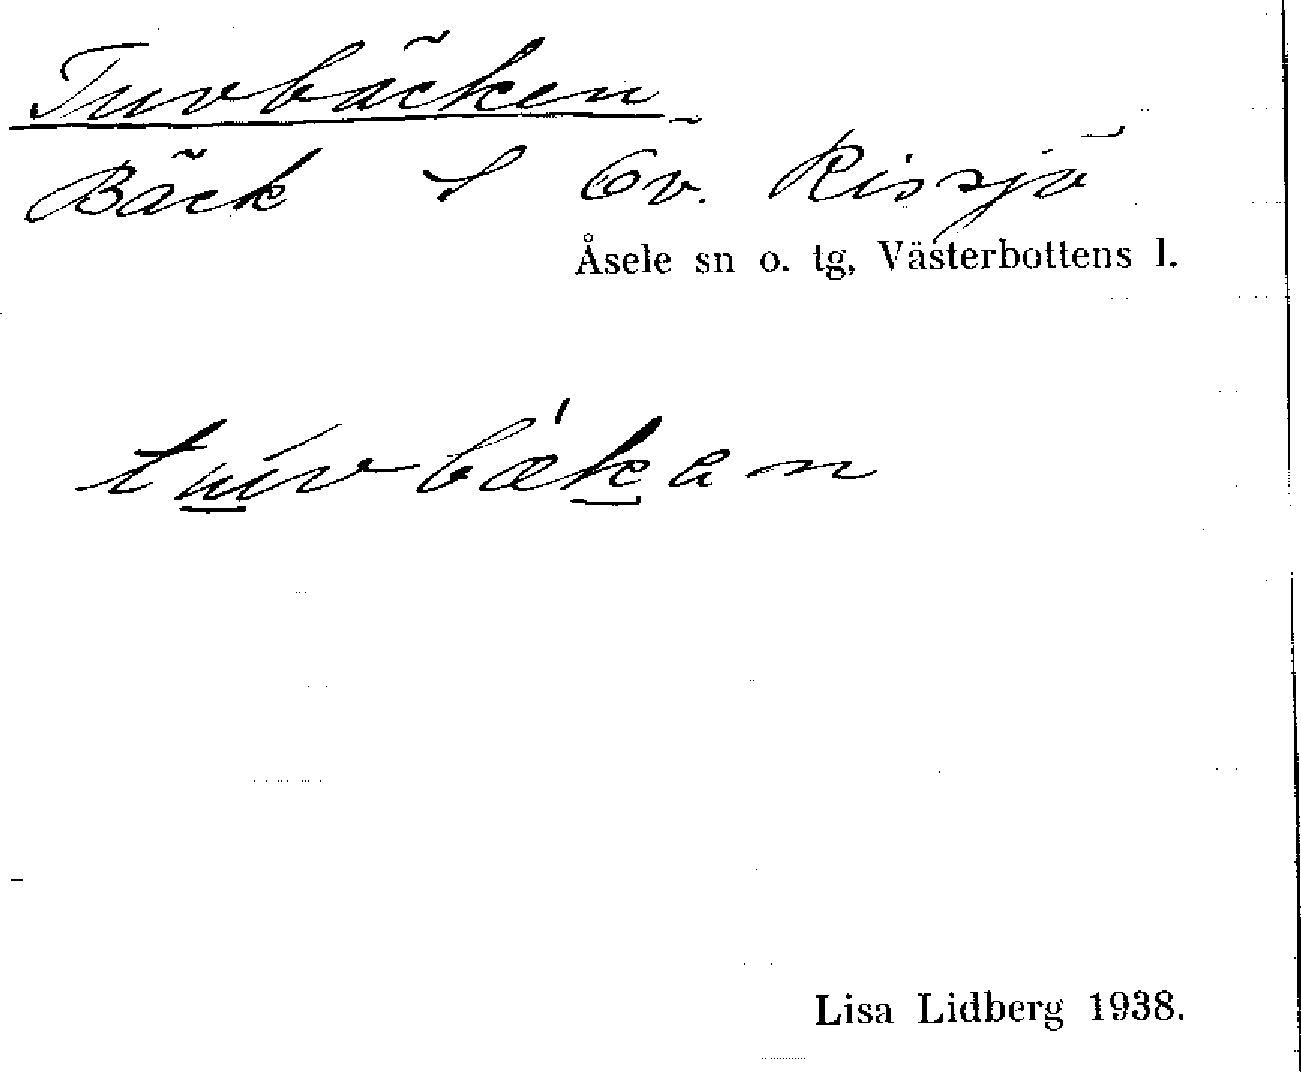 Tuvbäcken
Bäck S Öv. Rissjö
Åsele sn o. tg, Västerbottens l.
tu̲vbæ'k̲an
Lisa Lidberg 1938.